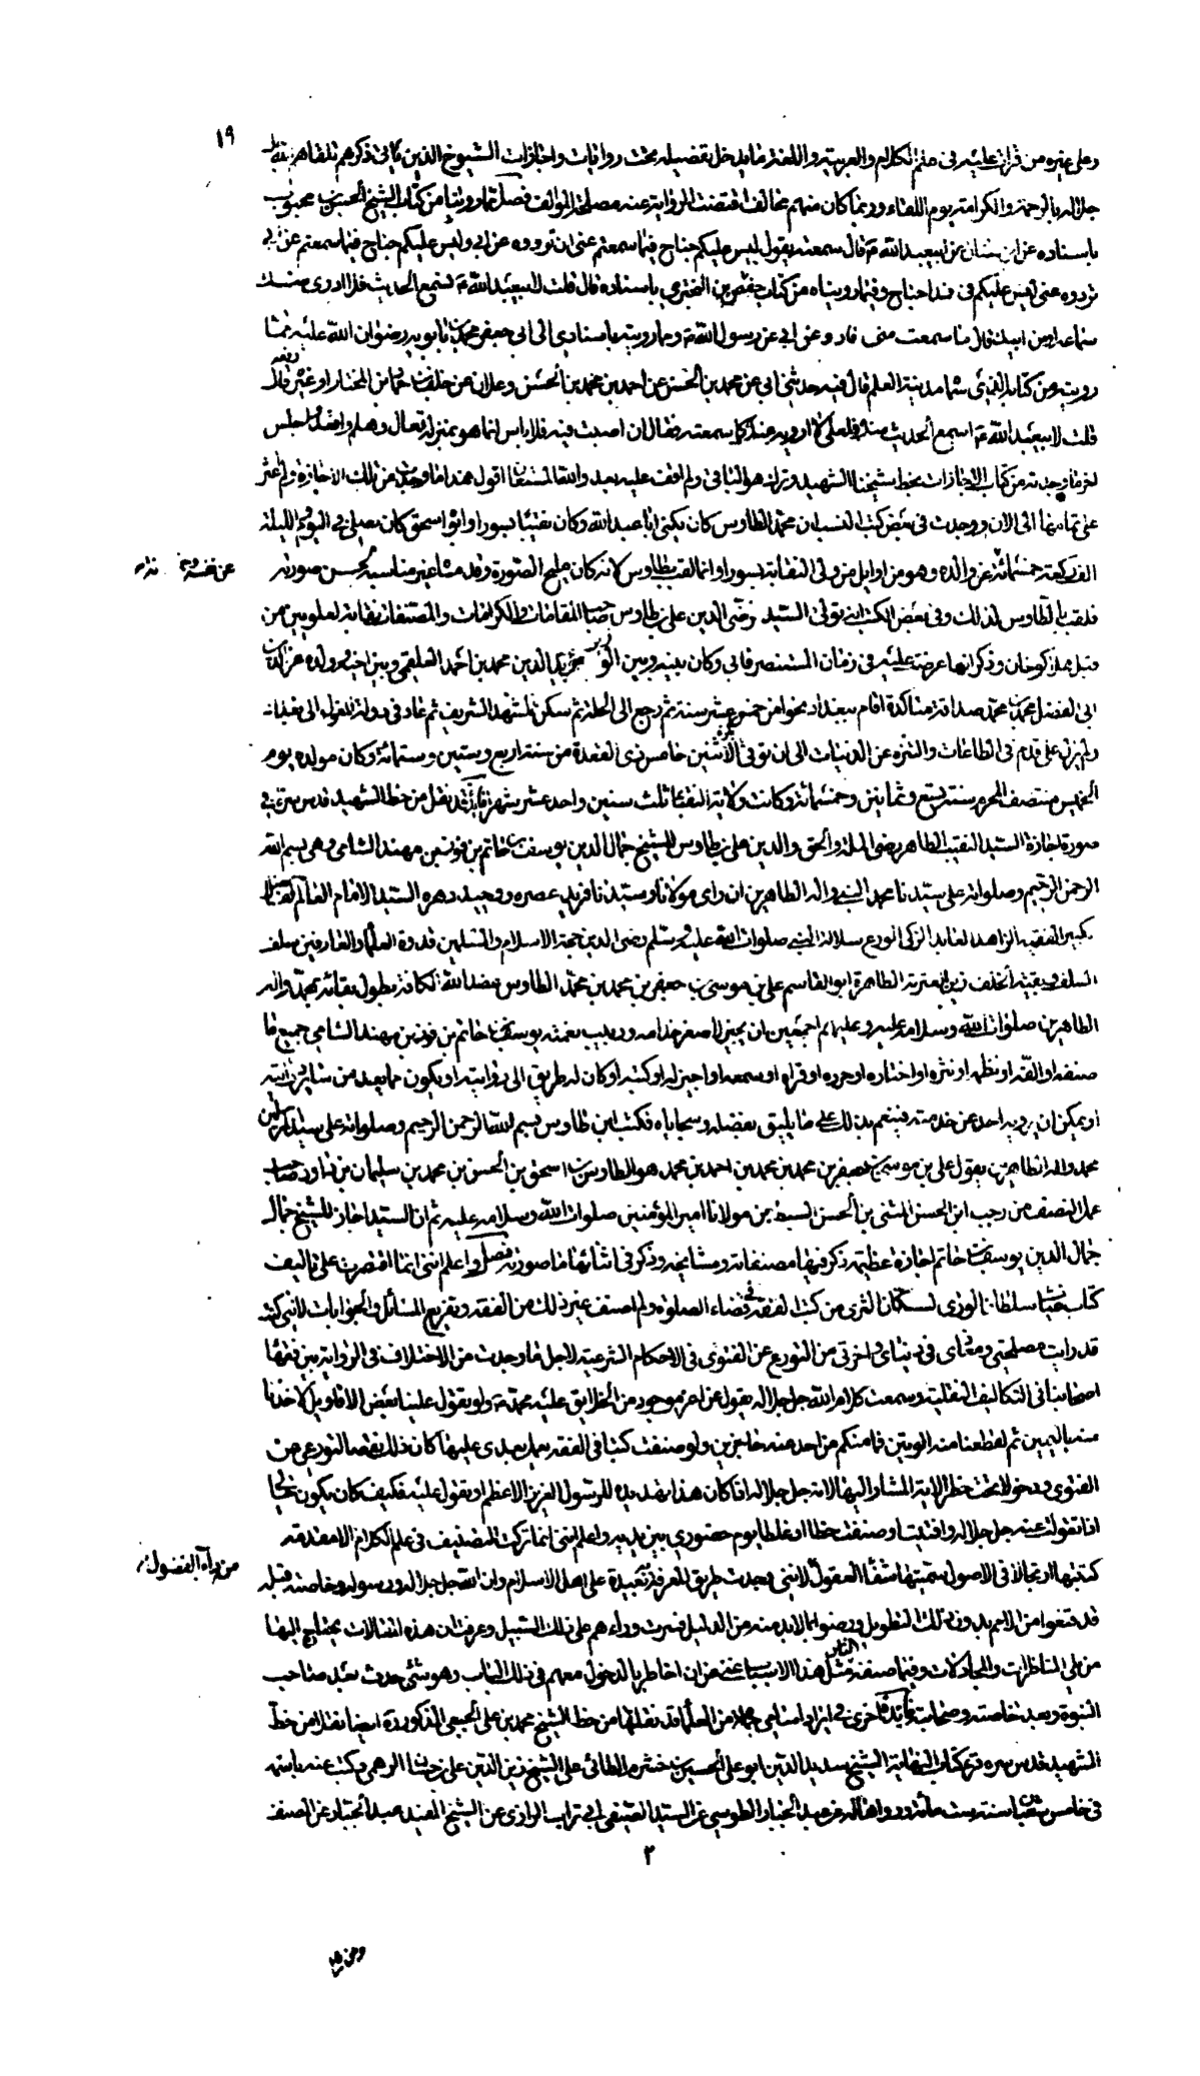 ١٩
وعلى غيره من قرأت عليه في علم الكلام والعربية واللغة ما يدخل تفصيله تحت روايات واجازات الشيوخ الذين يأتي ذكرهم تلقاهم الله جل
جلاله بالرحمة والكرامة يوم اللقاء وربما كان منهم مخالف اقتضت الرواية عنه مصلحة للمؤالف فصل مما رويناه من كتاب الشيخ الحسن بن محبوب
باسناده عن ابن سنان عن ابيعبد الله ع قال سمعته يقول ليس عليكم جناح فيما سمعتم عني ان ترووه عن ابي وليس عليكم جناح فيما سمعتم عن ابي
ترووه عني ليس عليكم في هذا جناح وفيما رويناه من كتاب حفص بن البختري باسناده قال قلت لابيعبد الله ع نسمع الحديث فلا ادري منك
سماعه او من ابيك قال ما سمعت مني فاروه عن ابي عن رسول الله ص ومما رويته باسنادي الى ابي جعفر محمد بن بابويه رضوان الله عليه مما
رويته من كتابه الذي سماه مدينة العلم قال فيه حدثني ابي عن محمد بن الحسن عن احمد بن محمد بن الحسن وعلان عن خلف بن حماد عن ابن المختار او غيره رفعه قال
قلت لابيعبد الله ع اسمع الحديث منك فلعلي لا ارويه عنك كما سمعته فقال ان اصبت فيه فلا باس انما هو بمنزلة تعال وهلم واقعد واجلس
اخر ما وجدته من كتاب الاجازات بخط شيخنا الشهيد وترك هو الباقي ولم اقف عليه بعد والله المستعان اقول هذا ما وجدت من تلك الاجازة ولم اعثر
على تمامها الى الان ووجدت في بعض كتب النسب ان محمد الطاوس كان يكنى ابا عبد الله وكان نقيبا بسورا وابو اسحق كان يصلي في اليوم والليلة
الف ركعة خمسمائة عن والده وهو من اوايل من ولي النقابة بسورا وانما لقب بالطاوس لانه كان مليح الصورة وقدماه غير مناسبة لحسن صورته
عن نفسه وخمسمائة
فلقب بالطاوس لذلك وفي بعض الكتب انه تولى السيد رضي الدين علي بن طاوس صاحب المقامات والكرامات والمصنفات نقابة العلويين من
قبل هلاكوخان وذكر انها عرضت عليه في زمان المستنصر فابى وكان بينه وبين الوزير مؤيد الدين محمد بن احمد العلقمي وبين اخيه وولده عز الدين
ابي الفضل محمد بن محمد صداقة متاكدة اقام ببغداد نحوا من خمس عشرة سنة ثم رجع الى الحلة ثم سكن المشهد الشريف ثم عاد في دولة المغول الى بغداد
ولم يزل على قدم في الطاعات والتنزه عن الدنيات الى ان توفي بكرة الاثنين خامس ذي القعدة من سنة اربع وستين وستمائة وكان مولده يوم
الخميس منتصف المحرم سنة تسع وثمانين وخمسمائة وكانت ولاية النقابة ثلث سنين واحد عشر شهرا فائدة نقل من خط الشهيد قدس سره في
صورة اجازة السيد النقيب الطاهر رضي الملة والحق والدين علي بن طاوس للشيخ جمال الدين يوسف بن حاتم بن فوز بن مهند الشامي وهي بسم الله
الرحمن الرحيم وصلواته على سيدنا محمد النبي واله الطاهرين ان راى مولانا وسيدنا فريد عصره ووحيد دهره السيد الامام العالم
الكبير الفقيه الزاهد العابد الزكي الورع سلالة النبي صلوات الله عليه وسلم رضي الدين حجة الاسلام والمسلمين قدوة العلماء والعارفين سلف
السلف وبقية الخلف زين العترة الطاهرة ابو القاسم علي بن موسى بن جعفر بن محمد بن محمد الطاوس عضد الله الكافة بطول بقائه بمحمد واله
الطاهرين صلوات الله وسلامه عليه وعليهم اجمعين ان يجيز لاصغر خدامه وربيب نعمته يوسف بن حاتم بن فوز بن مهند الشامي جميع ما
صنفه او الفه او نظمه او نثره او اختاره او حرره او قراه او سمعه او اجيز له او كتبه او كان له طريق الى روايته او يكون مما يعد من ساير روايته
او يمكن ان يرويه احد عن خدمته فينعم بذلك على ما يليق بفضله وسجاياه فكتب ابن طاوس بسم الله الرحمن الرحيم وصلواته على سيد المرسلين
محمد واله الطاهرين يقول علي بن موسى بن جعفر بن محمد بن محمد بن احمد بن محمد هو الطاوس بن اسحق بن الحسن بن محمد بن سليمان بن داود صاحب
عمل النصف من رجب ابن الحسن المثنى بن الحسن السبط بن مولانا امير المؤمنين صلوات الله وسلامه عليه ثم ان السيد اجاز للشيخ جمال
جمال الدين يوسف بن حاتم اجازة عظيمة ذكر فيها مصنفاته ومشايخه وذكر في اثنائها ما صورته فصل واعلم انني انما اقتصرت على تاليف
كتاب غياث سلطان الورى لسكان الثرى من كتب الفقه في قضاء الصلوة ولم اصنف غير ذلك من الفقه وتفريع المسائل والجوابات لانني كنت
قد رايت مصلحتي ومعاذي في دنياي واخرتي من التورع عن الفتوى في الاحكام الشرعية لاجل ما وجدت من الاختلاف في الرواية بين فقهاء
اصحابنا في التكاليف النقلية وسمعت كلام الله جل جلاله يقول عن اعز موجود من الخلايق عليه محمد ص ولو تقول علينا بعض الاقاويل لاخذنا
منه باليمين ثم لقطعنا منه الوتين فما منكم من احد عنه حاجزين ولو صنفت كتبا في الفقه يعمل بعدي عليها كان ذلك نقضا لتورعي من
الفتوى ودخولا تحت خطر الاية المشار اليها لانه جل جلاله اذا كان هذا تهديده للرسول العزيز الاعظم لو تقول عليه فكيف كان يكون حالي
اذا تقولت عنه جل جلاله وافتيت او صنفت خطأ او غلطا يوم حضوري بين يديه واعلم انني انما تركت التصنيف في علم الكلام الا مقدمة
كتبتها ارتجالا في الاصول سميتها شفاء العقول لانني وجدت طريق المعرفة بعيدة على اهل الاسلام وان الله جل جلاله ورسوله وخاصته قبله
من داء الفضول
قد قنعوا من الامم بدون ذلك التطويل ورضوا بما لا بد منه من الدليل فسرت وراءهم على ذلك السبيل وعرفت ان هذه المقالات يحتاج اليها
من يلي المناظرات والمجادلات وفيما صنفه الناس مثل هذا الاسباب غنى عن ان اخاطر بالدخول معهم في ذلك الباب وهو شيء حدث بعد صاحب
النبوة وبعد خاصته وصحابته فائدة اخرى في ايراد اسامي جملة من العلماء قد نقلها من خط الشيخ محمد بن علي الجبعي المذكورة ايضا نقلا من خط
الشهيد قدس سره قرأ كتاب النهاية الشيخ سديد الدين ابو علي الحسين بن خشرم الطائي على الشيخ زين الدين علي بن حسان الرهمي وكتب عنه باذنه
في خامس شعبان سنة ست مائة ورواها له عن عبد الجبار الطوسي عن السيد الصفي ابي تراب الرازي عن الشيخ المفيد عبد الجبار عن المصنف
٢
ومن